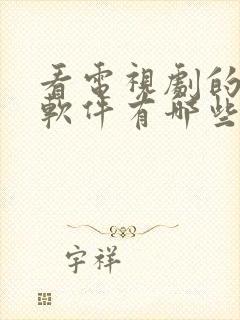 看電視劇的
軟件有哪些
宇祥